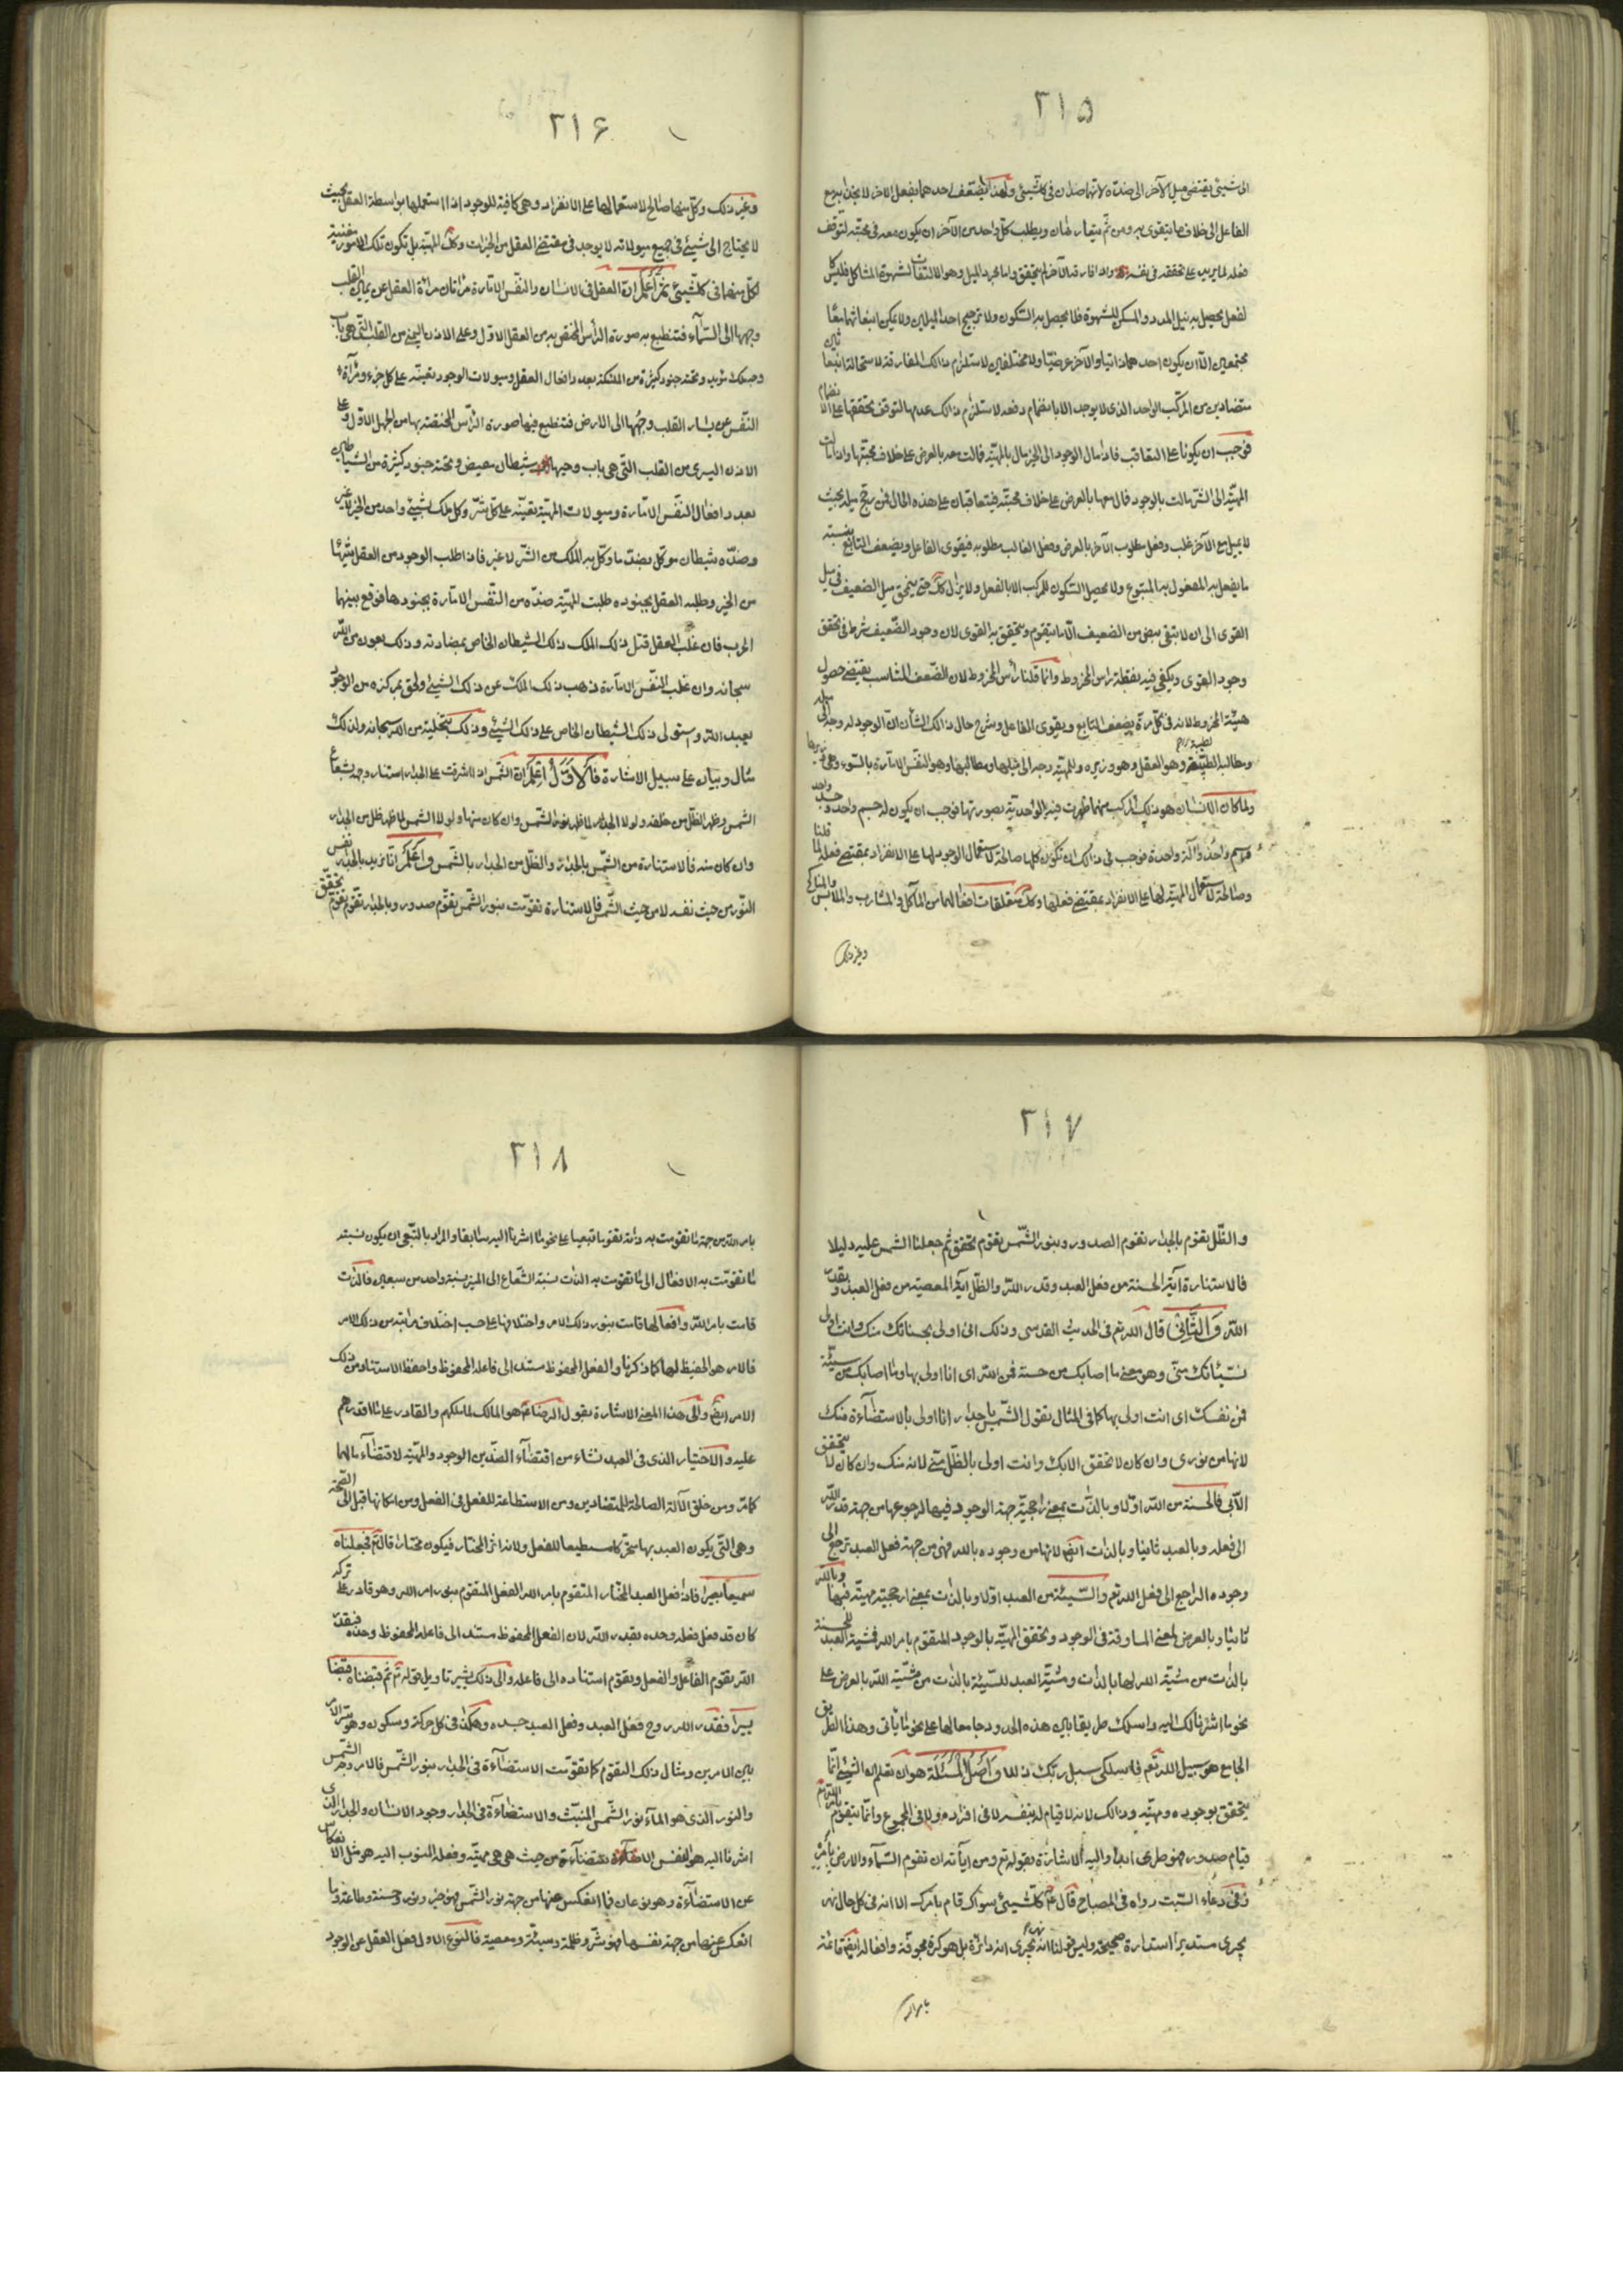 ٢١٥
الى شيئ يقتضى ميل الآخر الى ضده لانهما ضدان فى كل شيئ ولهذا يضعف احدهما بفعل الاخر لا
الفاعل الى خلاف ما يتقوى به ومن ثم يتعارضان ويطلب كل واحد من الآخر ان يكون معه فى محبته لتوقف
فعله لما يريد على تحققه فى نفسه واذا فارقه الآخر لم يتحقق واما مجرد الميل وهو الالتفات لشهوة المشاكل فليس كا
لفعل يحصل به نيل المدد والمسكن للشهوة فلا يحصل به السكون ولا ترجيح احد الميلين ولا يمكن انبعاثهما معًا
مجتمعين الا ان يكون احدهما ذاتيا والآخر عرضيّا ولا مختلفين لاستلزام ذلك المفارقة لاستحالة انبعاث
متضادين من المركب الواحد الذى لا يوجد الا بانضمام وفعه لاستلزام ذلك عدمها لتوقف تحققها على الانضمام
فوجب ان يكونا على التعاقب فاذا مال الوجود الى الخير مال بالمهيّة فمالت معه بالعرض على خلاف محبتها واذا مالت
المهيّة الى الشر مالت بالوجود فمال معها بالعرض على خلاف محبته فيتعاقبان على هذه الحال فمن رجح ميله بحيث
لا يميل مع الآخر غلب وفعل مطلوب الآخر بالعرض وفعل الغالب مطلوبه فيقوى الفاعل ويضعف التابع بنسبته
ما يفعل به المفعول به المتبوع ولا يحصل السكون للمركب الا بالفعل ولا يزال كك حتى يتحقق ميل الضعيف فى ميل
القوى الى ان لا تبقى بيض من الضعيف الا ما يتقوم ويتحقق به القوى لان وجود الضعيف شرط فى تحقق
وجود القوى ويكفى فيه نقطة راس المخروط وانما قلنا رأس المخروط لان الضعف المتناسب يقتضى حصول
هيئة المخروط لانه فى كل مرة يضعف التابع ويقوى الفاعل وشرح حال ذلك الشأن ان الوجود له وجه الى ميله
ومطالبه الطيبة وهو العقل وهو وزيره وللمهيّة وجه الى ميلها ومطالبها وهو النفس الامارة بالسوء وهى وزيرها
ولما كان الانسان هو ذلك المركب منهما ظهرت فيه الواحديّة بصورتها فوجب ان يكون له جسم واحد وجسد واحد
واسم واحد وآلة واحدة فوجب فى ذلك ان تكون كلها صالحة لاستعمال الوجود لها على الانفراد بمقتضى فعله لما قلنا
وصالحة لاستعمال المهيّة لها على الانفراد بمقتضى فعلها وكك متعلقات افعالهما من المآكل والمشارب والملابس والمناكح
وغير ذلك
٢١۶
وغير ذلك وكل منها صالح لاستعمالها على الانفراد وهى كافية للوجود اذا استعملها بواسطة العقل بحيث
لا يحتاج الى شيئ فى جميع ميولاته لا يوجد فى مقتضى العقل من الخيرات وكك المهيّة بل تكون تلك الامور مغنية
لكل منهما فى كل شيئ ثم اعلم ان العقل فى الانسان والنفس الامارة مرآتان مرآة العقل عن يمين القلب
وجهها الى السّمآء فتنطبع به صورة الرأس المختص به من العقل الاول وعلى الاذن اليمنى من القلب التى هى باب
وحيه ملك مؤيد وتحته جنود كثيرة من الملئكة بعدد افعال العقل وميولات الوجود تعينه على كل خير ومرآة
النفس عن يسار القلب وجهها الى الارض فتنطبع فيها صورة الرأس المختصة بها من الجهل الاول وعلى
الاذن اليسرى من القلب التى هى باب وحيها شيطان مقيض وتحته جنود كثيرة من الشياطين
بعدد افعال النفس الامارة وميولات المهيّة تعينه على كل شرّ وكل ملك بشيئ واحد من الخير لا غير
وضدّه شيطان موكل بضد ما وكل به الملك من الشرّ لا غير فاذا طلب الوجود من العقل شيئا
من الخير وطلبه العقل بجنوده طلبت المهيّة ضدّه من النفس الامارة بجنودها فوقع بينهما
الحرب فان غلب العقل قتل ذلك الملك ذلك الشيطان الخاص بمضادته وذلك بعون من الله
سبحانه وان غلب النفس الامارة ذهب ذلك الملك عن ذلك الشيئ ولحق بمركزه من الوجود
يعبد الله واستولى ذلك الشيطان الخاص على ذلك الشيئ وذلك بتخلية من الله سبحانه ولذلك
مثال وبيان على سبيل الاشارة فالاوّل اعلم ان الشمس اذا اشرقت على الجدار استنار وجهه بشعاع
الشمس وظهر الظل من خلفه ولولا الجدار لما ظهر نور الشمس وان كان منها ولولا الشمس لما ظهر ظل من الجدار
وان كان منه فالاستنارة من الشمس بالجدار والظل من الجدار بالشمس واعلم انا نريد بالجدار نفس
النّور من حيث نفسه لا من حيث الشمس فالاستنارة تقومت بنور الشمس تقوّم صدور وبالجدار تقوّم تحقق
٢١٧
والظّل يقوم بالجدار تقوم الصدور وبنور الشّمس يقوم تحقق ثم جعلنا الشمس عليه دليلا
فالاستنارة آية الحسنة من فعل العبد وقدر الله والظّل آية المعصية من فعل العبد وبقدر
الله والثّانى قال الله تعم فى الحديث القدسى وذلك انى اولى بحسناتك منك وانت اولى
بسيّئاتك منّى وهو معنى ما اصابك من حسنة فمن الله اى انا اولى بها وما اصابك من سيئة
فمن نفسك اى انت اولى بها كما فى المثال تقول الشّمس يا جدار انا اولى بالاستضآءة منك
لانها من نورى وان كان لا تحقق الا بك وانت اولى بالظّل منّى لانه منك وان كان لا يتحقق
الّا بى فالحسنة من الله اوّلا وبالذات بمعنى ارجحيّة جهة الوجود فيها لرجوعها من جهة قدر الله
الى فعله وبالعبد ثانيا وبالذات ايضا لانها من وجوده بالله فهى من جهة فعل العبد ترجع الى
وجوده الراجع الى فعل الله تعم والسّيئة من العبد اوّلا وبالذات بمعنى ارجحيّة مهيته فيها وبالله
ثانيًا وبالعرض لمعنى المساوقة فى الوجود وتحقق المهيّة بالوجود المتقوم بامر الله فمشيّة العبد للحسنة
بالذات من مشيّة الله لها بالذات ومشيّة العبد للسّيئة بالذات من مشّية الله بالعرض على
نحو ما اشرنا لك اليه واسلك طريقا بين هذه الحدود جامعا لها على نحو ما يأتى وهذا الطريق
الجامع هو سبيل الله تعم فاسلكى سبل ربك ذللا واصل المسئلة هو ان تعلم ان الشيئ انّما
يتحقق بوجوده ومهيّته وذلك لانه لا قيام له بنفسه لا فى افراده ولا فى المجموع وانّما يتقوم بامر الله تعم
قيام صدور فهو طرى ابدا واليه الاشارة بقوله تعم ومن آياته ان تقوم السّمآء والارض بأمره
وفى دعاء السّبت رواه فى المصباح قال ع كلّ شيئ سواك قام بامرك الا انه فى كل حال نهر
يجرى مستديرا استدارة صحيحة وليس قولنا انه نهر يجرى انه دائرة بل هو كرة مجوفة وافعاله ايضا قائمة
بامر الله
٢١٨
بامر الله من جهة ما تقومت به ذاته تقوما تبعيا على نحو ما اشرنا اليه سابقا والمراد بالتّبعى ان يكون نسبته
ما تقوّمت به الافعال الى ما تقومت به الذات نسبة الشّعاع الى المنير بنسبة واحد من سبعين فالذات
قامت بامر الله وافعالها قامت بنور ذلك الامر واختلافها على حسب اختلاف مراتبه من ذلك الامر
فالامر هو الحفيظ لها كما ذكرنا والفعل المحفوظ مستند الى فاعله المحفوظ وحفظ الاستناد من ذلك
الامر ايضا والى هذا المعنى الاشارة بقول الرضا ع هو المالك لما ملكهم والقادر على ما اقدرهم
عليه والاختيار الذى فى العبد نشاء من اقتضآء الضدّين الوجود والمهيّة لاقتضآء مالهما
كما مر ومن خلق الآلة الصالحة للمتضادين ومن الاستطاعة للفعل فى الفعل ومن امكانها قبل الى الصحة
وهى التى يكون العبد بها متحركا مستطيعا للفعل ولانه اثر المختار فيكون مختارا قال تم فجعلناه
سميعا بصيرا فاذا فعل العبد المختار المتقوم بامر الله الفعل المتقوم بنور امر الله وهو قادر على تركه
كان قد فعل فعله وحده بقدر الله لان الفعل المحفوظ مستند الى فاعله المحفوظ وحده فبقدر
الله يقوم الفاعل والفعل ويقوم استناده الى فاعله والى ذلك يشير تاويل قوله تم ثم قبضناه قبضا
يسيرا فقدر الله روح فعل العبد وفعل العبد جسده وهكذا فى كل حركة وسكون وهو سر الامر
بين الامرين ومثال ذلك التقوم كما تقومت الاستضآءة فى الجدار بنور الشّمس فالامر وجه الشّمس
والنور الذى هو المآء نور الشّمس المنبّث والاستضاءة فى الجدار وجود الانسان والجدار الذى
اشرنا اليه هو نفس الاستضآءة من حيث هى هى مهيّة وفعله المنسوب اليه هو مثل الانعكاس
عن الاستضآءة وهو نوعان فما انعكس عنها من جهة نور الشّمس فهو خير ونور وحسنة وطاعة وما
انعكس عنها من جهة نفسها فهو شرّ وظلمة وسيئة ومعصية فالنوع الاول فعل العقل عن الوجود